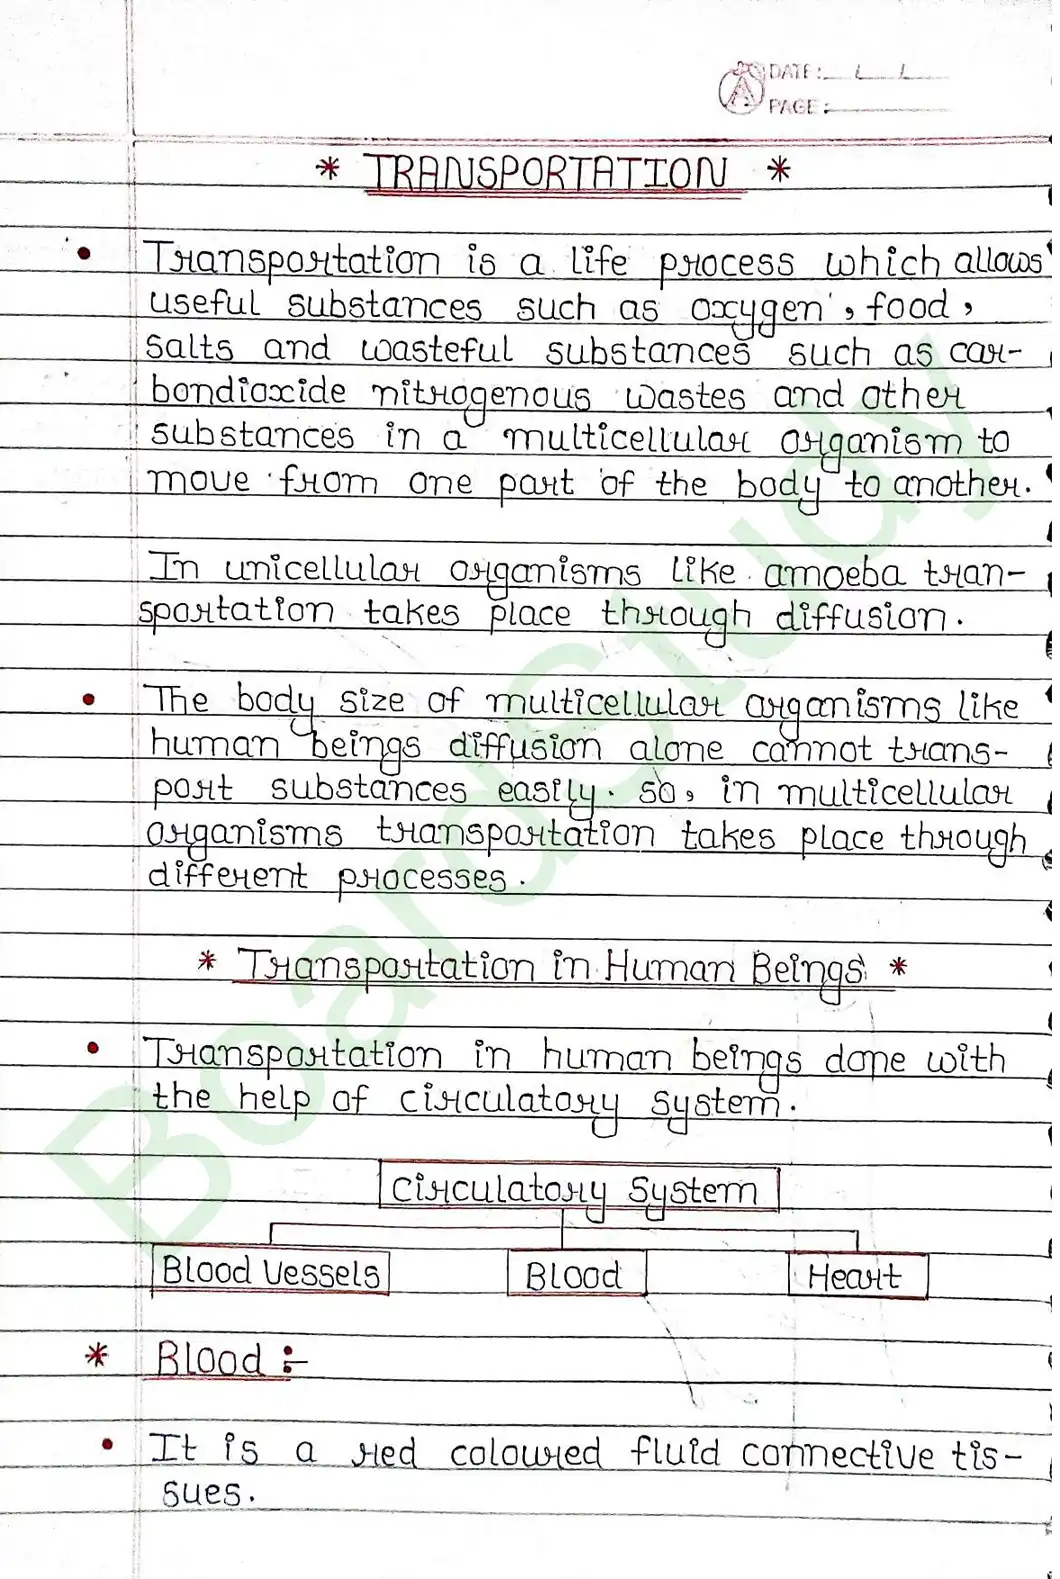 DATE: / /
PAGE:
* TRANSPORTATION *
• Transportation is a life process which allows
useful substances such as oxygen, food,
salts and wasteful substances such as car-
bondioxide nitrogenous wastes and other
substances in a multicellular organism to
move from one part of the body to another.
In unicellular organisms like amoeba tran-
sportation takes place through diffusion.
• The body size of multicellular organisms like
human beings diffusion alone cannot trans-
port substances easily. so, in multicellular
organisms transportation takes place through
different processes.
* Transportation in Human Beings *
• Transportation in human beings done with
the help of circulatory system.
Circulatory System
Blood Vessels Blood Heart
* Blood :-
• It is a red coloured fluid connective tis-
sues.
BoardStudy